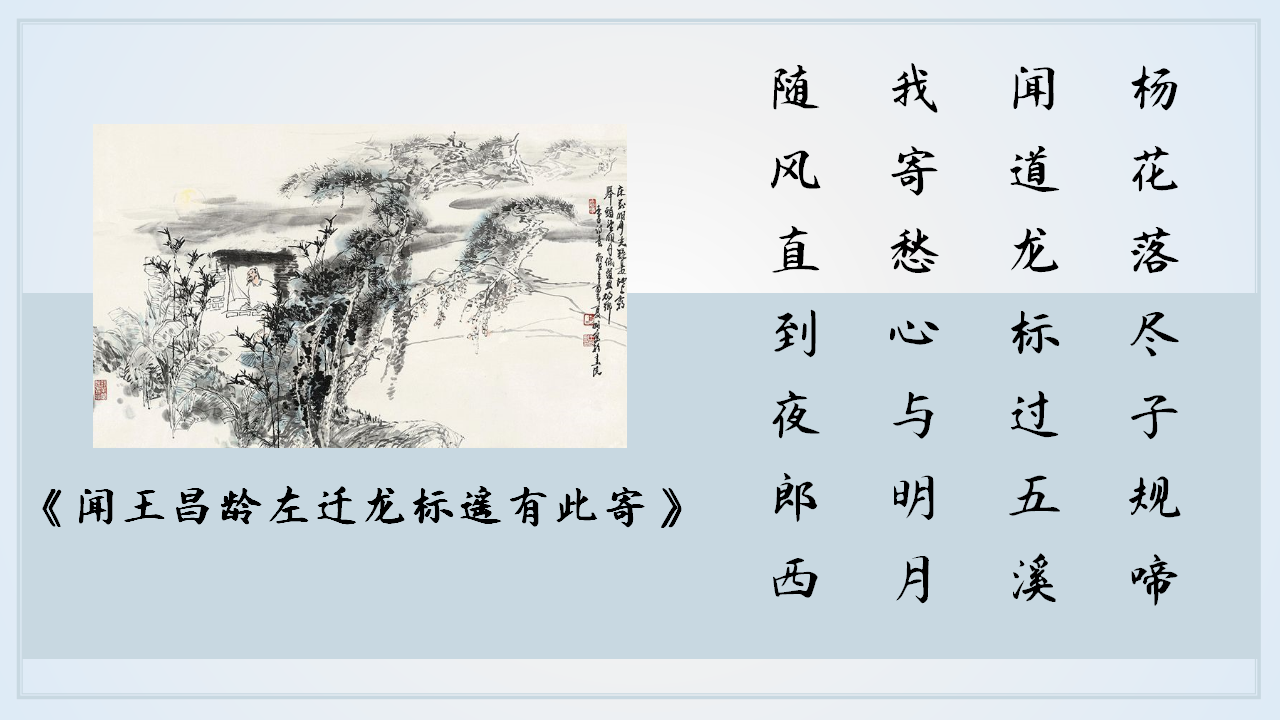 杨花落尽子规啼
闻道龙标过五溪
我寄愁心与明月
随风直到夜郎西
《闻王昌龄左迁龙标遥有此寄》